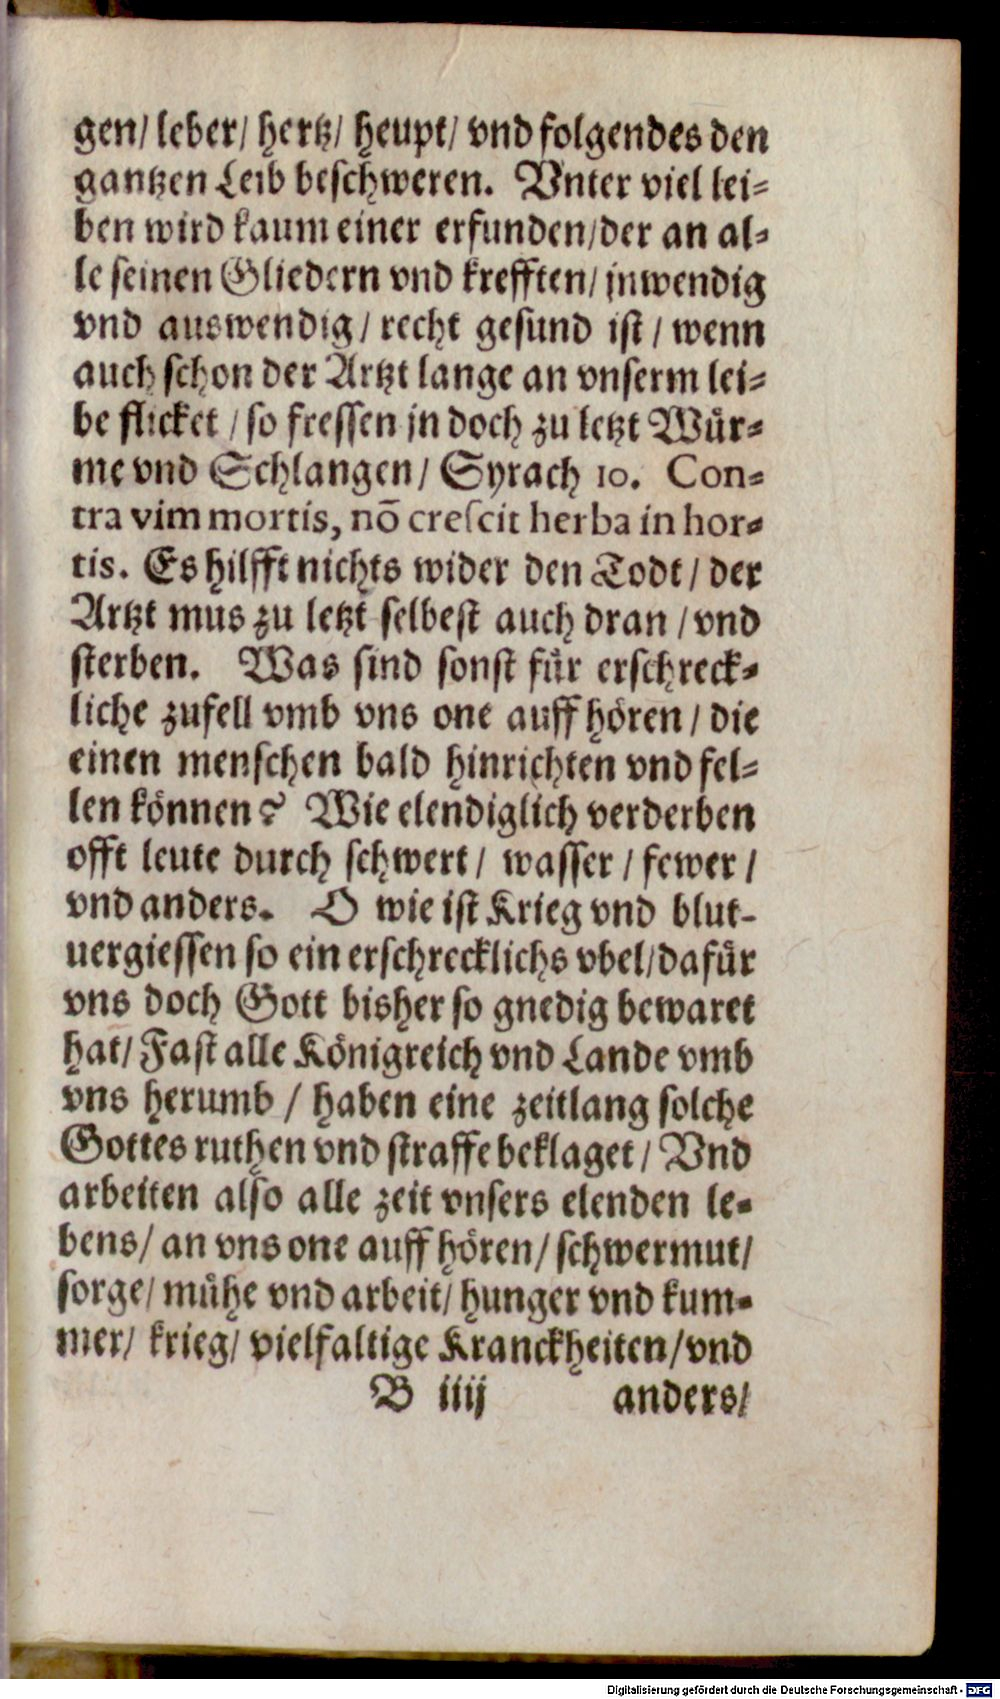 gen/ leber/ hertz/ heupt/ vnd folgendes den
gantzen Leib beschweren. Vnter viel lei-
ben wird kaum einer erfunden/der an al-
le seinen Gliedern vnd krefften/ jnwendig
vnd auswendig/ recht gesund ist/ wenn
auch schon der Artzt lange an vnserm lei-
be flicket / so fressen jn doch zu letzt Wür-
me vnd Schlangen/ Syrach 10. Con-
tra vim mortis, nō crescit herba in hor-
tis. Es hilfft nichts wider den Todt/ der
Artzt mus zu letzt selbest auch dran / vnd
sterben. Was sind sonst für erschreck-
liche zufell vmb vns one auff hören/ die
einen menschen bald hinrichten vnd fel-
len können? Wie elendiglich verderben
offt leute durch schwert/ wasser / fewer /
vnd anders. O wie ist Krieg vnd blut-
uergiessen so ein erschrecklichs vbel/dafür
vns doch Gott bisher so gnedig bewaret
hat/ Fast alle Königreich vnd Lande vmb
vns herumb / haben eine zeitlang solche
Gottes ruthen vnd straffe beklaget/ Vnd
arbeiten also alle zeit vnsers elenden le-
bens/ an vns one auff hören/ schwermut/
sorge/ mühe vnd arbeit/ hunger vnd kum-
mer/ krieg/ vielfaltige Kranckheiten/vnd
B iiij anders/
Digitalisierung gefördert durch die Deutsche Forschungsgemeinschaft - DFG